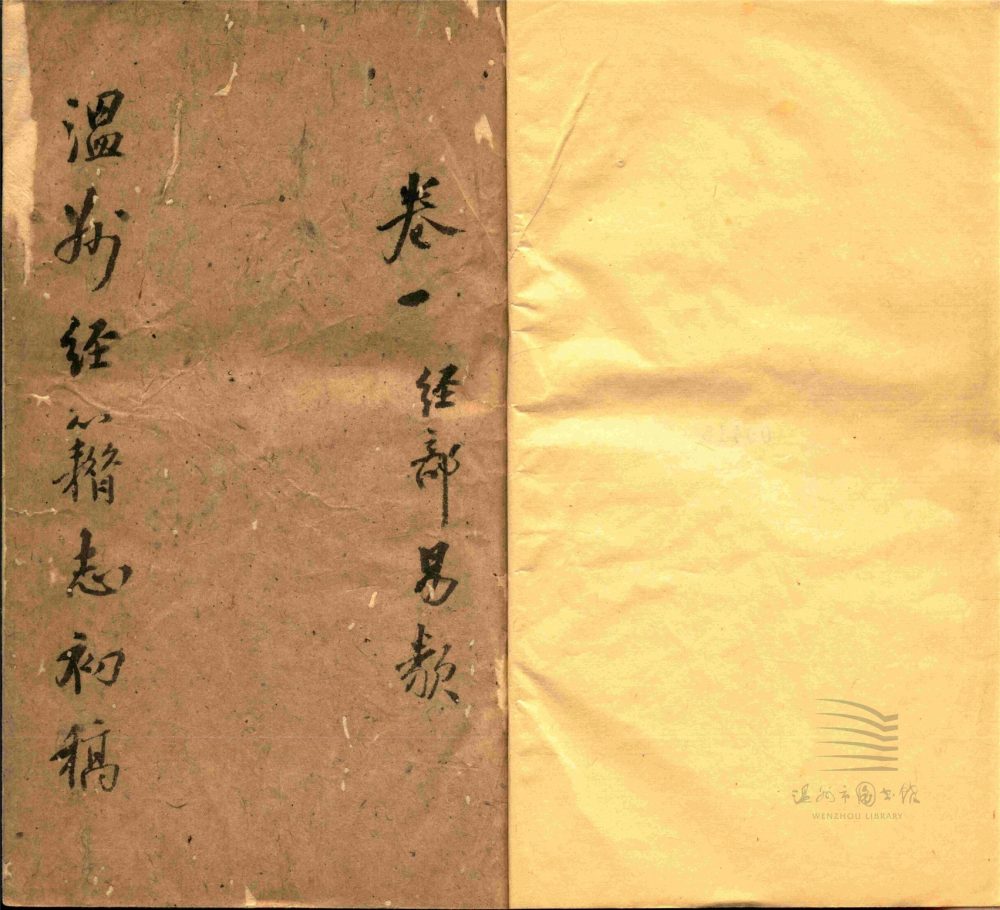 卷一 经部易類
溫州经籍志初稿
温州市图书馆
WENZHOU LIBRARY